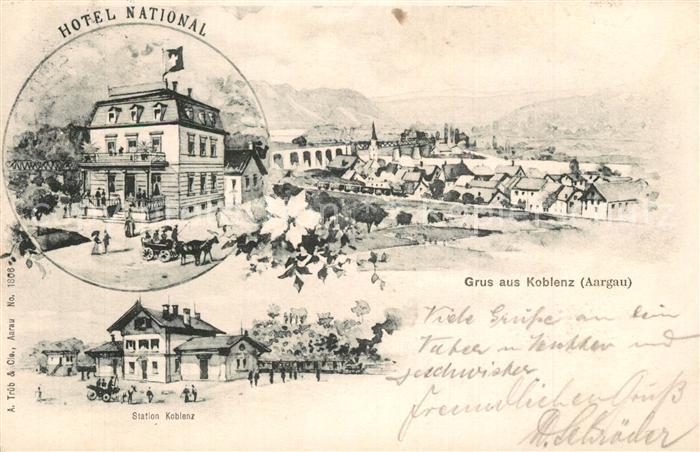 HOTEL NATIONAL
Grus aus Koblenz (Aargau)
Viele Grüße an dein
Vater u Mutter und
geschwister
freundlichen Gruß
Schröder
Station Koblenz
A. Trüb & Cie., Aarau No. 1806